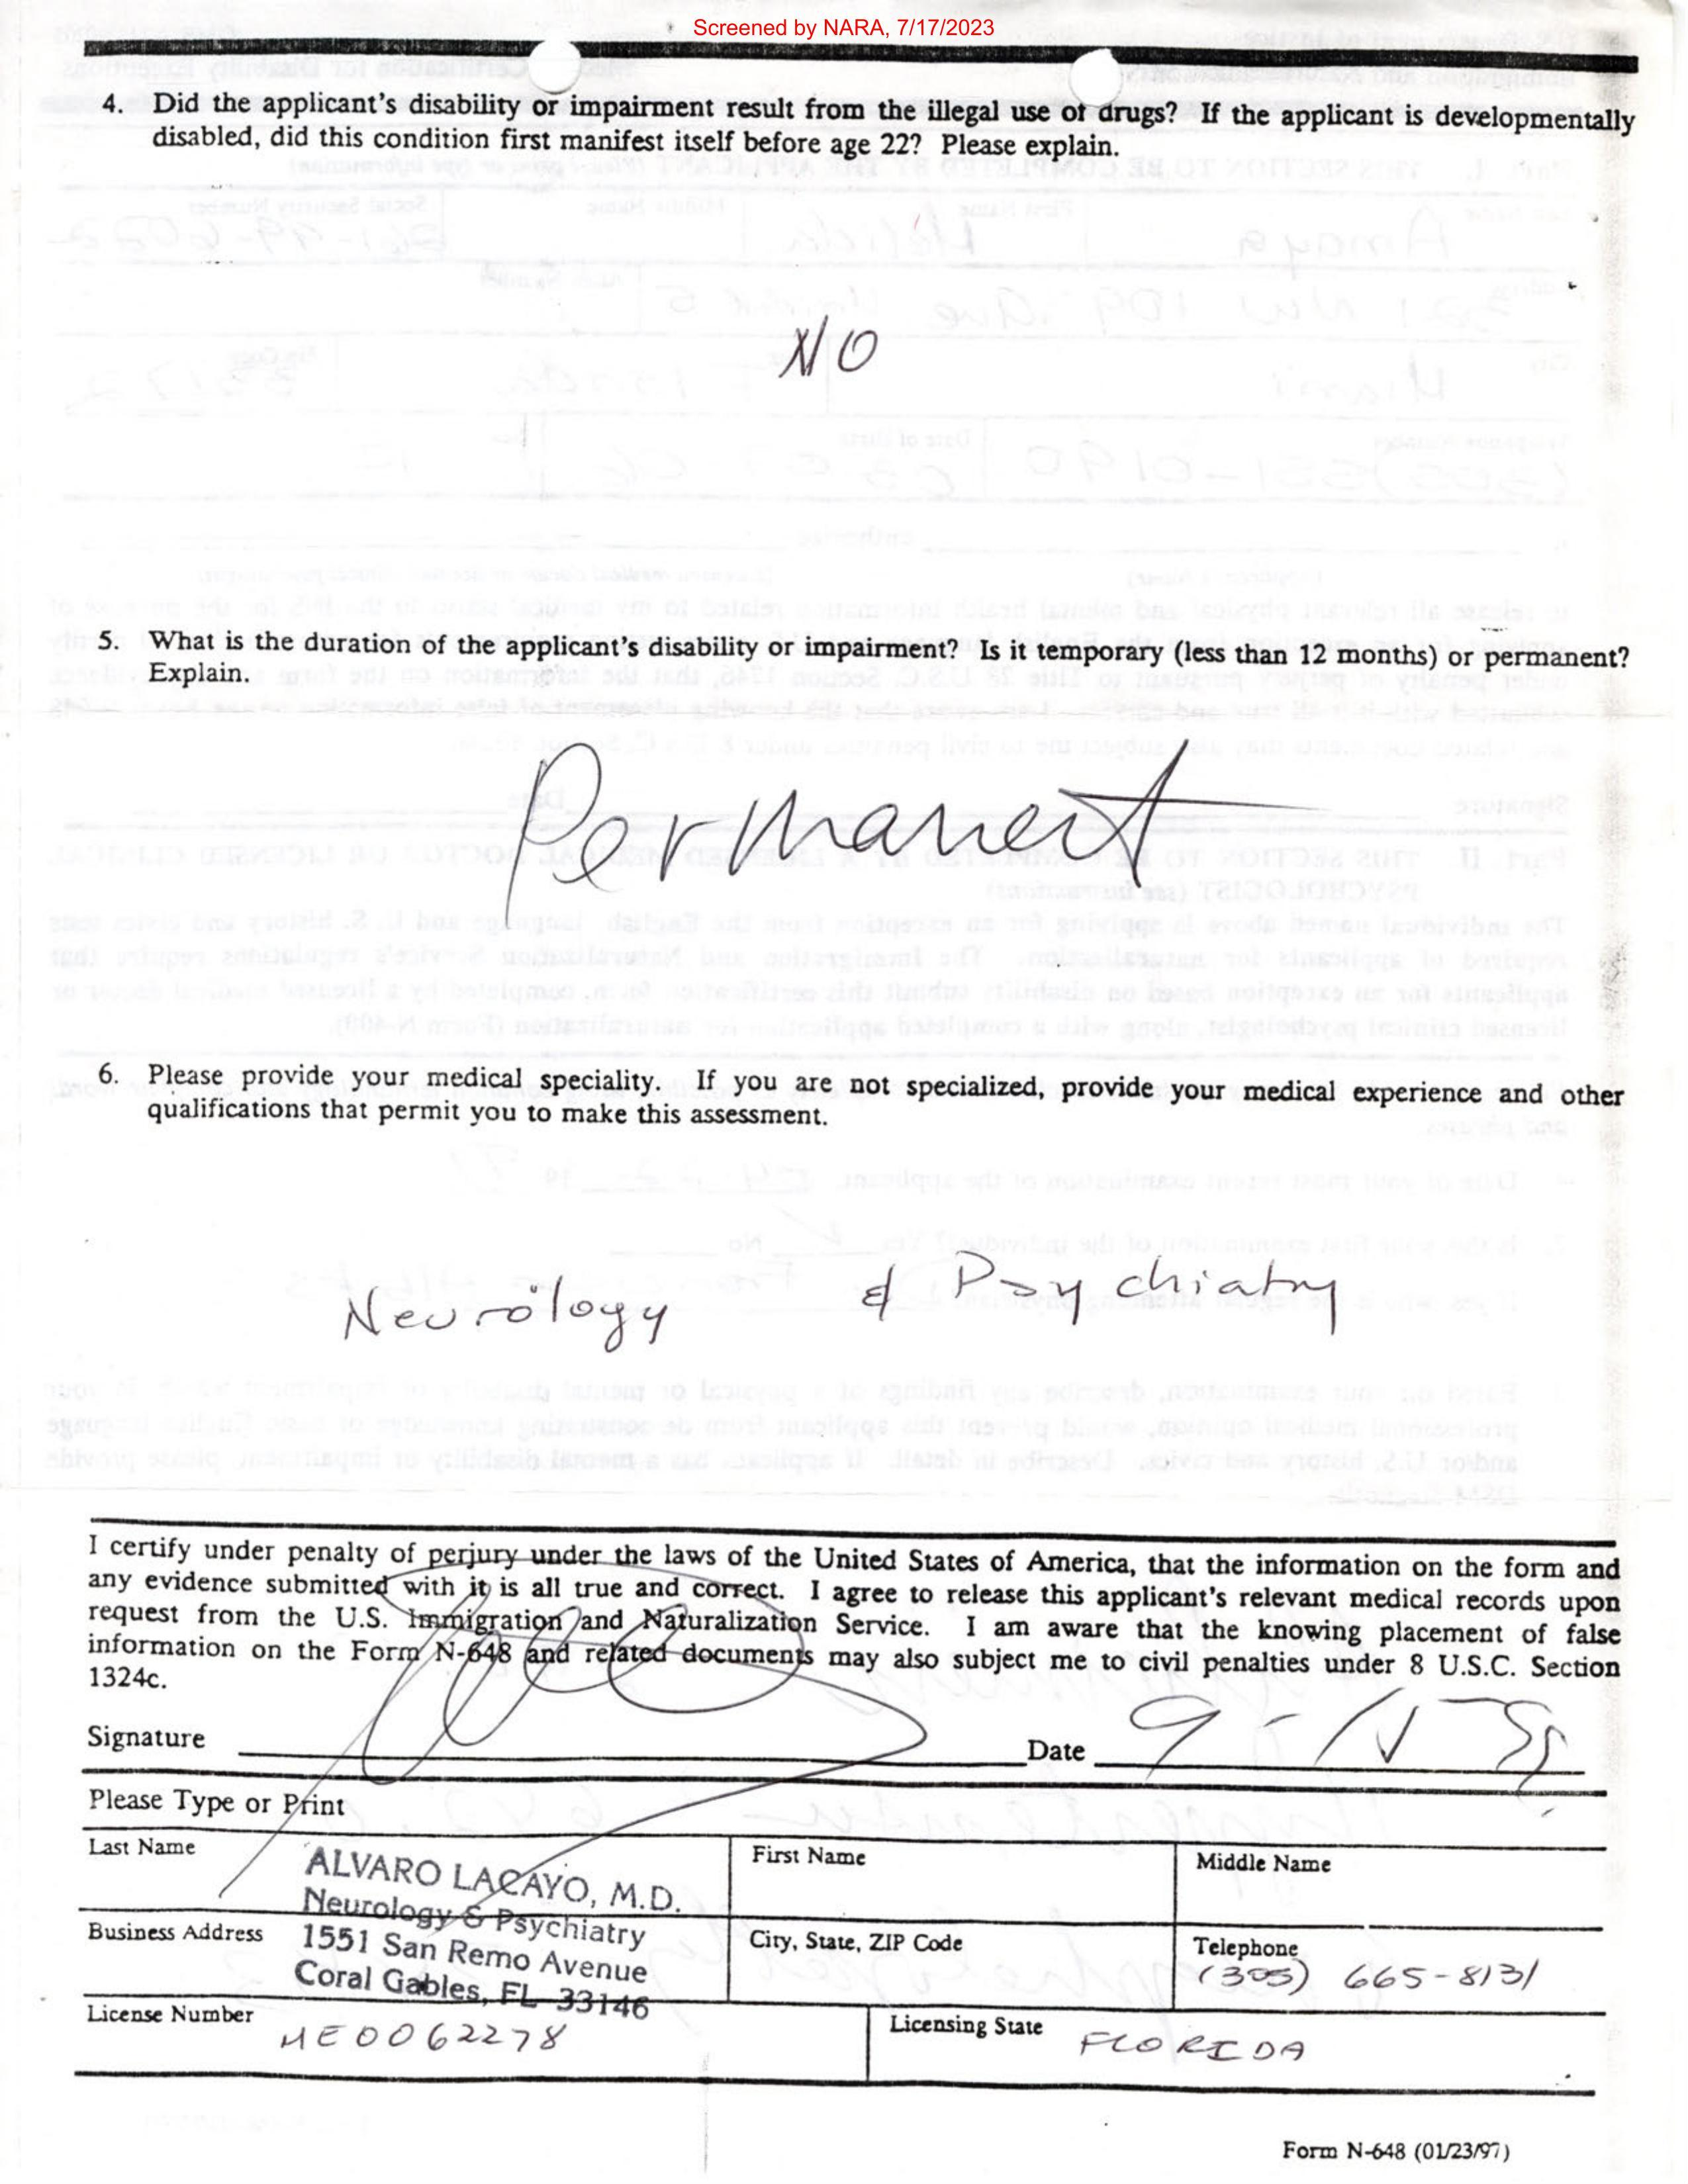 Screened by NARA, 7/17/2023
4. Did the applicant's disability or impairment result from the illegal use of drugs? If the applicant is developmentally
disabled, did this condition first manifest itself before age 22? Please explain.
NO
5. What is the duration of the applicant's disability or impairment? Is it temporary (less than 12 months) or permanent?
Explain.
Permanent
6. Please provide your medical speciality. If you are not specialized, provide your medical experience and other
qualifications that permit you to make this assessment.
Neurology & Psychiatry
I certify under penalty of perjury under the laws of the United States of America, that the information on the form and
any evidence submitted with it is all true and correct. I agree to release this applicant's relevant medical records upon
request from the U.S. Immigration and Naturalization Service. I am aware that the knowing placement of false
information on the Form N-648 and related documents may also subject me to civil penalties under 8 U.S.C. Section
1324c.
Signature Date
Please Type or Print
Last Name First Name Middle Name
ALVARO LACAYO, M.D.
Neurology & Psychiatry
Business Address City, State, ZIP Code Telephone
1551 San Remo Avenue (305) 665-8131
Coral Gables, FL 33146
License Number ME0062278 Licensing State FLORIDA
Form N-648 (01/23/97)